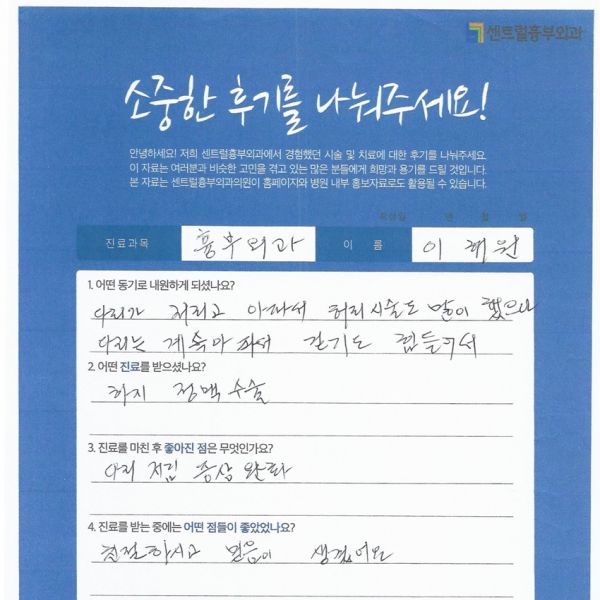 센트럴흉부외과
소중한 후기를 나눠주세요!
안녕하세요! 저희 센트럴흉부외과에서 경험했던 시술 및 치료에 대한 후기를 나눠주세요.
이 자료는 여러분과 비슷한 고민을 겪고 있는 많은 분들에게 희망과 용기를 드릴 것입니다.
본 자료는 센트럴흉부외과의원이 홈페이지와 병원 내부 홍보자료로도 활용될 수 있습니다.
작성일 년 월 일
진료과목 흉부외과 이 름 이
1. 어떤 동기로 내원하게 되셨나요?
다리가 저리고 아파서 허리시술도 많이 했으나
다리는 계속아파서 걷기도 힘들어서
2. 어떤 진료를 받으셨나요?
하지 정맥수술
3. 진료를 마친 후 좋아진 점은 무엇인가요?
다리 저림 증상 완화
4. 진료를 받는 중에는 어떤 점들이 좋았었나요?
친절하시고 믿음이 생겼어요